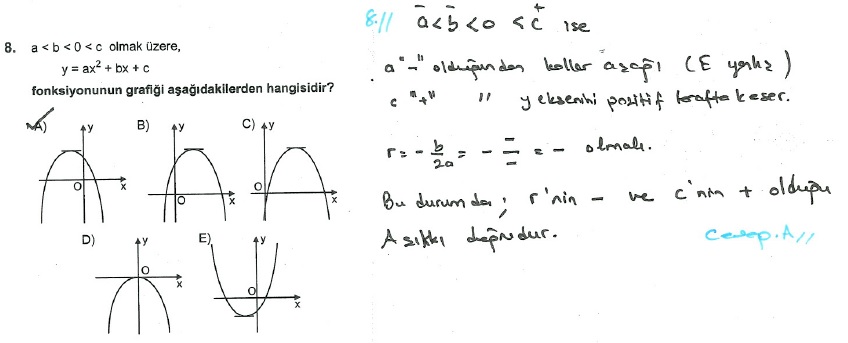 8. a < b < 0 < c olmak üzere,
y = ax² + bx + c
fonksiyonunun grafiği aşağıdakilerden hangisidir?
A) y O x
B) y O x
C) y O x
D) y O x
E) y O x
8.// a̅ < b̅ < 0 < c⁺ ise
a "-" olduğundan kollar aşağı (E yanlış)
c "+" " y eksenini pozitif tarafta keser.
r = - b/2a = - -/- = - olmalı.
Bu durumda; r'nin - ve c'nin + olduğu
A şıkkı doğrudur.
Cevap. A//